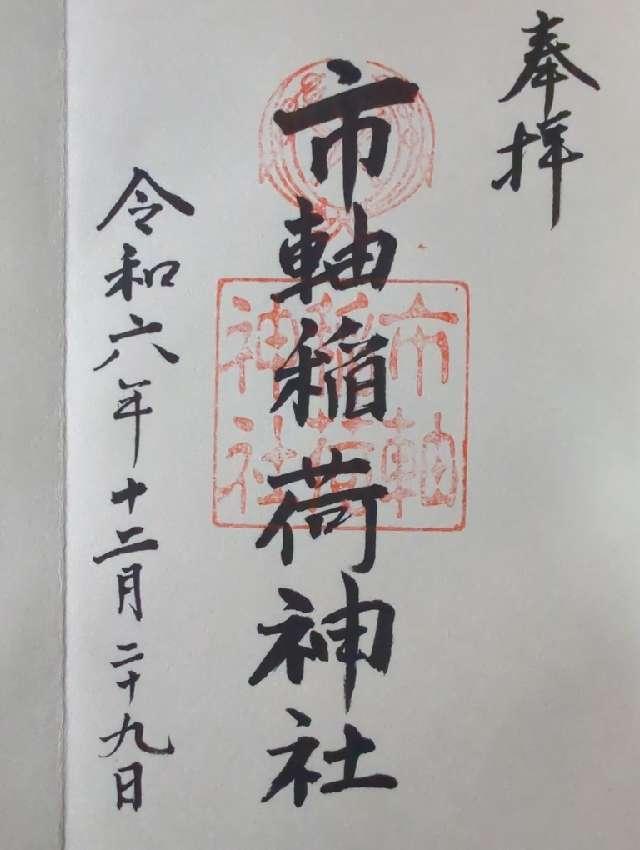 奉拝
市軸稲荷神社
市軸
稲荷
神社
令和六年十二月二十九日